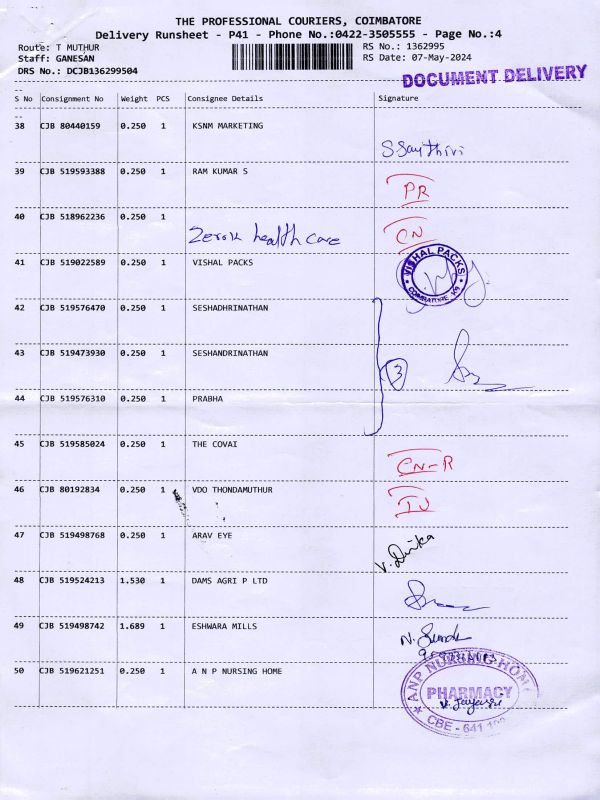 THE PROFESSIONAL COURIERS, COIMBATORE
Delivery Runsheet - P41 - Phone No.:0422-3505555 - Page No.:4
Route: T MUTHUR RS No.: 1362995
Staff: GANESAN RS Date: 07-May-2024
DRS No.: DCJB136299504
DOCUMENT DELIVERY
S No Consignment No Weight PCS Consignee Details Signature
38 CJB 80440159 0.250 1 KSNM MARKETING
39 CJB 519593388 0.250 1 RAM KUMAR S PR
40 CJB 518962236 0.250 1 health care CN
41 CJB 519022589 0.250 1 VISHAL PACKS VISHAL PACKS COIMBATORE
42 CJB 519576470 0.250 1 SESHADHRINATHAN
43 CJB 519473930 0.250 1 SESHANDRINATHAN 3
44 CJB 519576310 0.250 1 PRABHA
45 CJB 519585024 0.250 1 THE COVAI CN-R
46 CJB 80192834 0.250 1 VDO THONDAMUTHUR
47 CJB 519498768 0.250 1 ARAV EYE
48 CJB 519524213 1.530 1 DAMS AGRI P LTD
49 CJB 519498742 1.689 1 ESHWARA MILLS
50 CJB 519621251 0.250 1 A N P NURSING HOME
ANP NURSING HOME
PHARMACY
CBE - 641